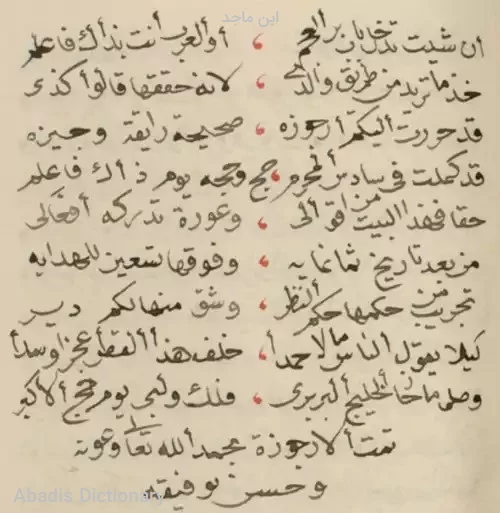 ابن ماجد
ان شيت تدخل باب بر العجم ، أو العرب أنت بذاك فاعلم
خذ ما تريد من طريق والدي ، لانه حققها قالوا كذي
قد حررت اليكم أرجوزه ، صحيحة رايقة وجيزه
قد كملت في سادس المحرم ، حج وحجه يوم ذاك فاعلم
حقا فهذا البيت من اقوالى ، وعورة تدركه أفعالى
من بعد تاريخ ثمانمايه ، وفوقها تسعين للهدايه
تجريب من حكمها حكم النظر ، وشق منها لكم
كيلا يقول الناس مالاحمدا ، خلف هذا الفقر عجزا وسدا
وصلى ما خاالخليج البربرى ، فلك ولبى يوم حج الاكبر
تمت الارجوزة بحمد الله تعا وعونه
وحسن توفيقه
Abadis Dictionary